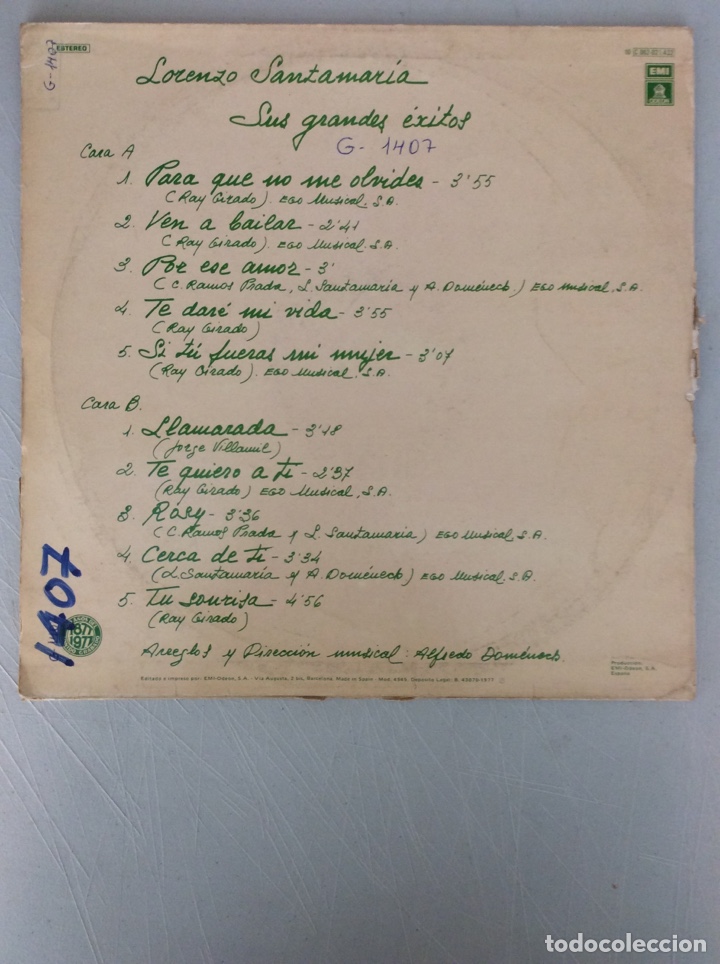 ESTEREO
G-1407
EMI
Lorenzo Santamaría
Sus grandes éxitos
G-1407
Cara A
1. Para que no me olvides - 3'55
(Ray Girado). EGO Musical, S.A.
2. Ven a bailar - 2'41
(Ray Girado). EGO Musical, S.A.
3. Por ese amor - 3'
(C. Ramos Prada, L. Santamaría y A. Doménech) EGO Musical, S.A.
4. Te daré mi vida - 3'55
(Ray Girado)
5. Si tú fueras mi mujer - 3'07
(Ray Girado). EGO Musical, S.A.
Cara B.
1. Llamarada - 3'18
(Jorge Villamil)
2. Te quiero a ti - 2'37
(Ray Girado) EGO Musical, S.A.
3. Rosy - 3'36
(C. Ramos Prada y L. Santamaría) EGO Musical, S.A.
4. Cerca de ti - 3'34
(L. Santamaría y A. Doménech) EGO Musical, S.A.
5. Tu sonrisa - 4'56
(Ray Girado)
1407
1877
1977
Arreglos y Dirección musical: Alfredo Doménech.
Producción:
EMI-Odeon, S.A.
España
Editado e impreso por: EMI-Odeon, S.A. - Vía Augusta, 2 bis, Barcelona. Made in Spain
todocoleccion
todocoleccion.net